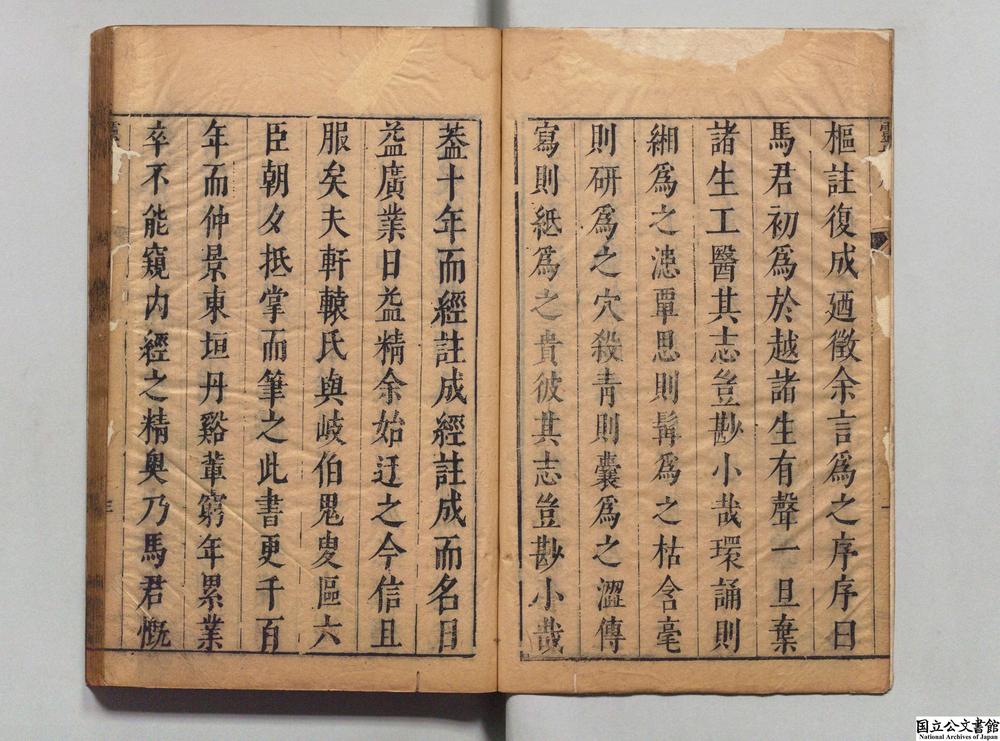 樞註復成廼徵余言爲之序序曰
馬君初爲於越諸生有聲一旦棄
諸生工醫其志豈尠小哉環誦則
緗爲之漶覃思則髯爲之枯含毫
則研爲之穴殺青則囊爲之澀傳
寫則紙爲之貴彼其志豈尠小哉
葢十年而經註成經註成而名日
益廣業日益精余始迂之今信且
服矣夫軒轅氏與岐伯鬼臾區六
臣朝夕抵掌而筆之此書更千百
年而仲景東垣丹谿輩窮年累業
卒不能窺内經之精奥乃馬君慨
三
国立公文書館
National Archives of Japan